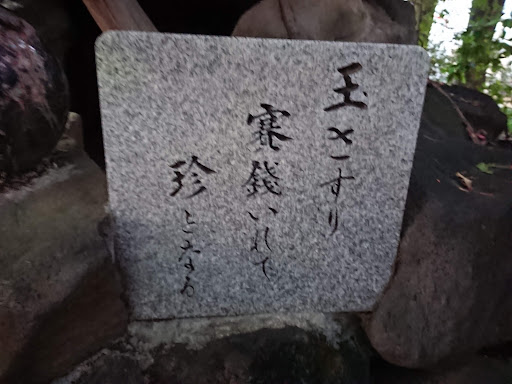 玉さすり
賽銭いれて
珍となる